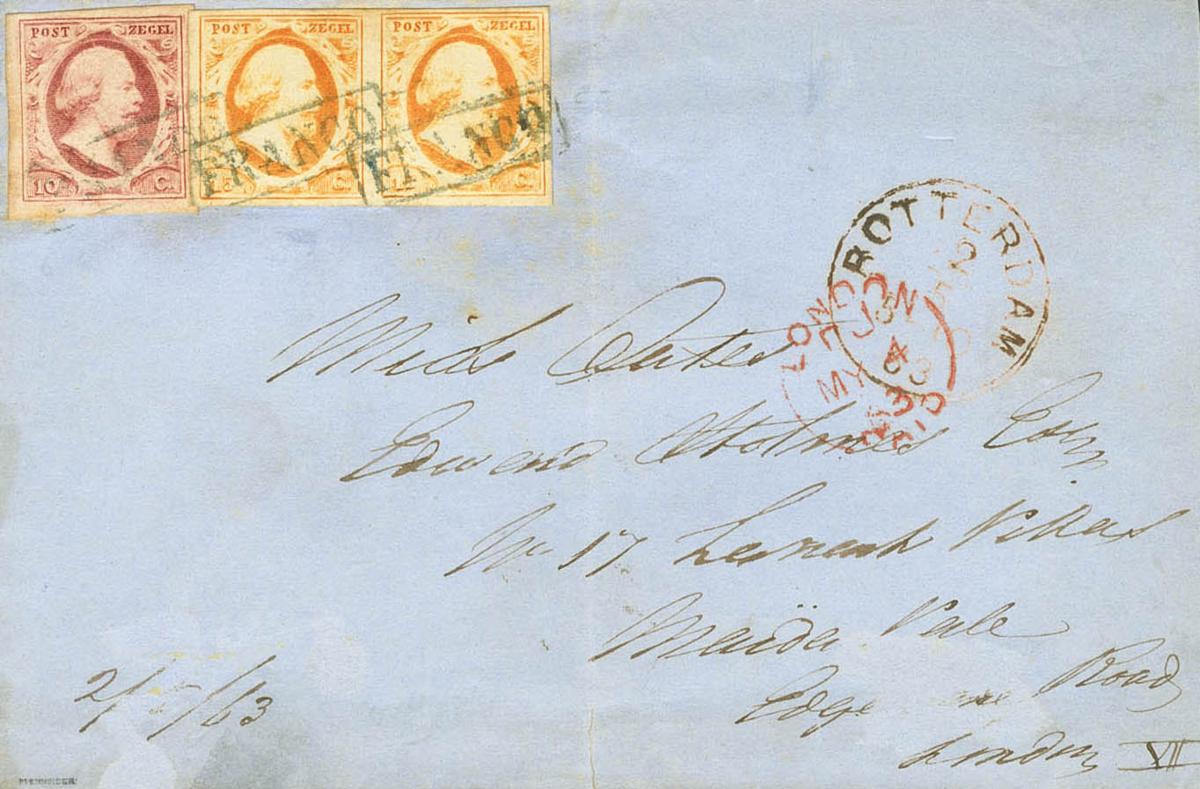 POST ZEGEL POST ZEGEL POST ZEGEL
FRANCO FRANCO
10 C. C. C.
ROTTERDAM
LONDON
4
MY
63
PAID
Miss Oates
Edward Holmes Esq
No 17 Villas
Maida Vale
Road
London VII
2/5/63